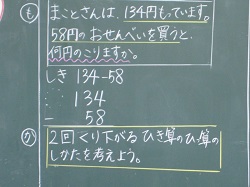 も まことさんは、134円もっています。
58円のおせんべいを買うと、
何円のこりますか。
しき 134-58
134
- 58
か 2回くり下がるひき算のひ算の
しかたを考えよう。